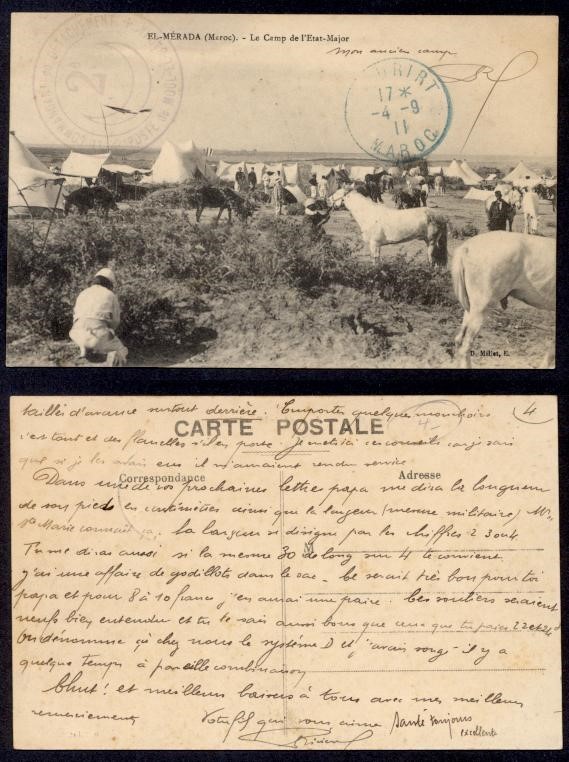 EL-MÉRADA (Maroc). - Le Camp de l'Etat-Major
mon ancien camp
17 *
-4 -9
11
MAROC
D. Millet, E.
4
taillés d'avance surtout derrière. Emportes quelque mouchoirs
CARTE POSTALE
c'est tout et des flanelles s'il en porte. Je
que si je les avais eus il m'auraient rendu service
Correspondance
Adresse
Dans une de vos prochaines lettres papa me dira la longueur
de son pied en centimètres ainsi que la largeur (mesure militaire) Mr
Ste Marie connait ça. la largeur se désigne par les chiffres 2 3 ou 4
Tu me diras aussi si la mesure 30 de long sur 4 te convient
j'ai une affaire de godillots dans le sac - ce serait très bon pour toi
papa et pour 8 à 10 francs j'en aurai une paire. Ces souliers seraient
neufs bien entendu et tu le sais aussi bons que ceux que tu paies 22 et 24
On dénomme ça chez nous le système D et j'avais songé il y a
quelque temps à pareille combinaison
Chut! et meilleurs baisers à tous avec mes meilleurs
remerciements
Votre fils qui vous aime
Santé toujours
excellente